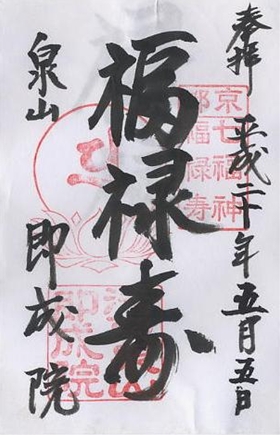 奉拝 平成二十年五月五日
京都七福神
福禄寿
福禄寿
泉山 即成院
即成院